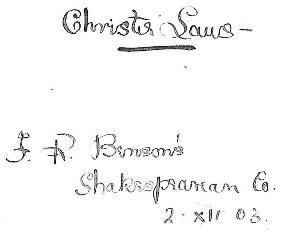 Christie Laws -
F. R. Benson's
Shakesprarian Co.
2. XII 03.